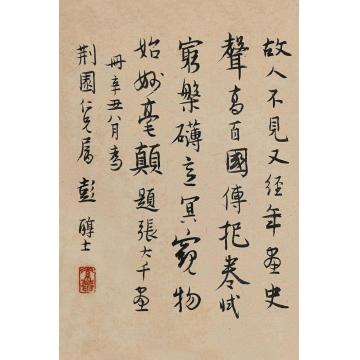 故人不見又經年畫史
聲高百國傳把卷試
窮槃礴意冥窺物
始妙毫顛題張大千畫
冊辛丑八月書
荆園仁兄屬彭醇士